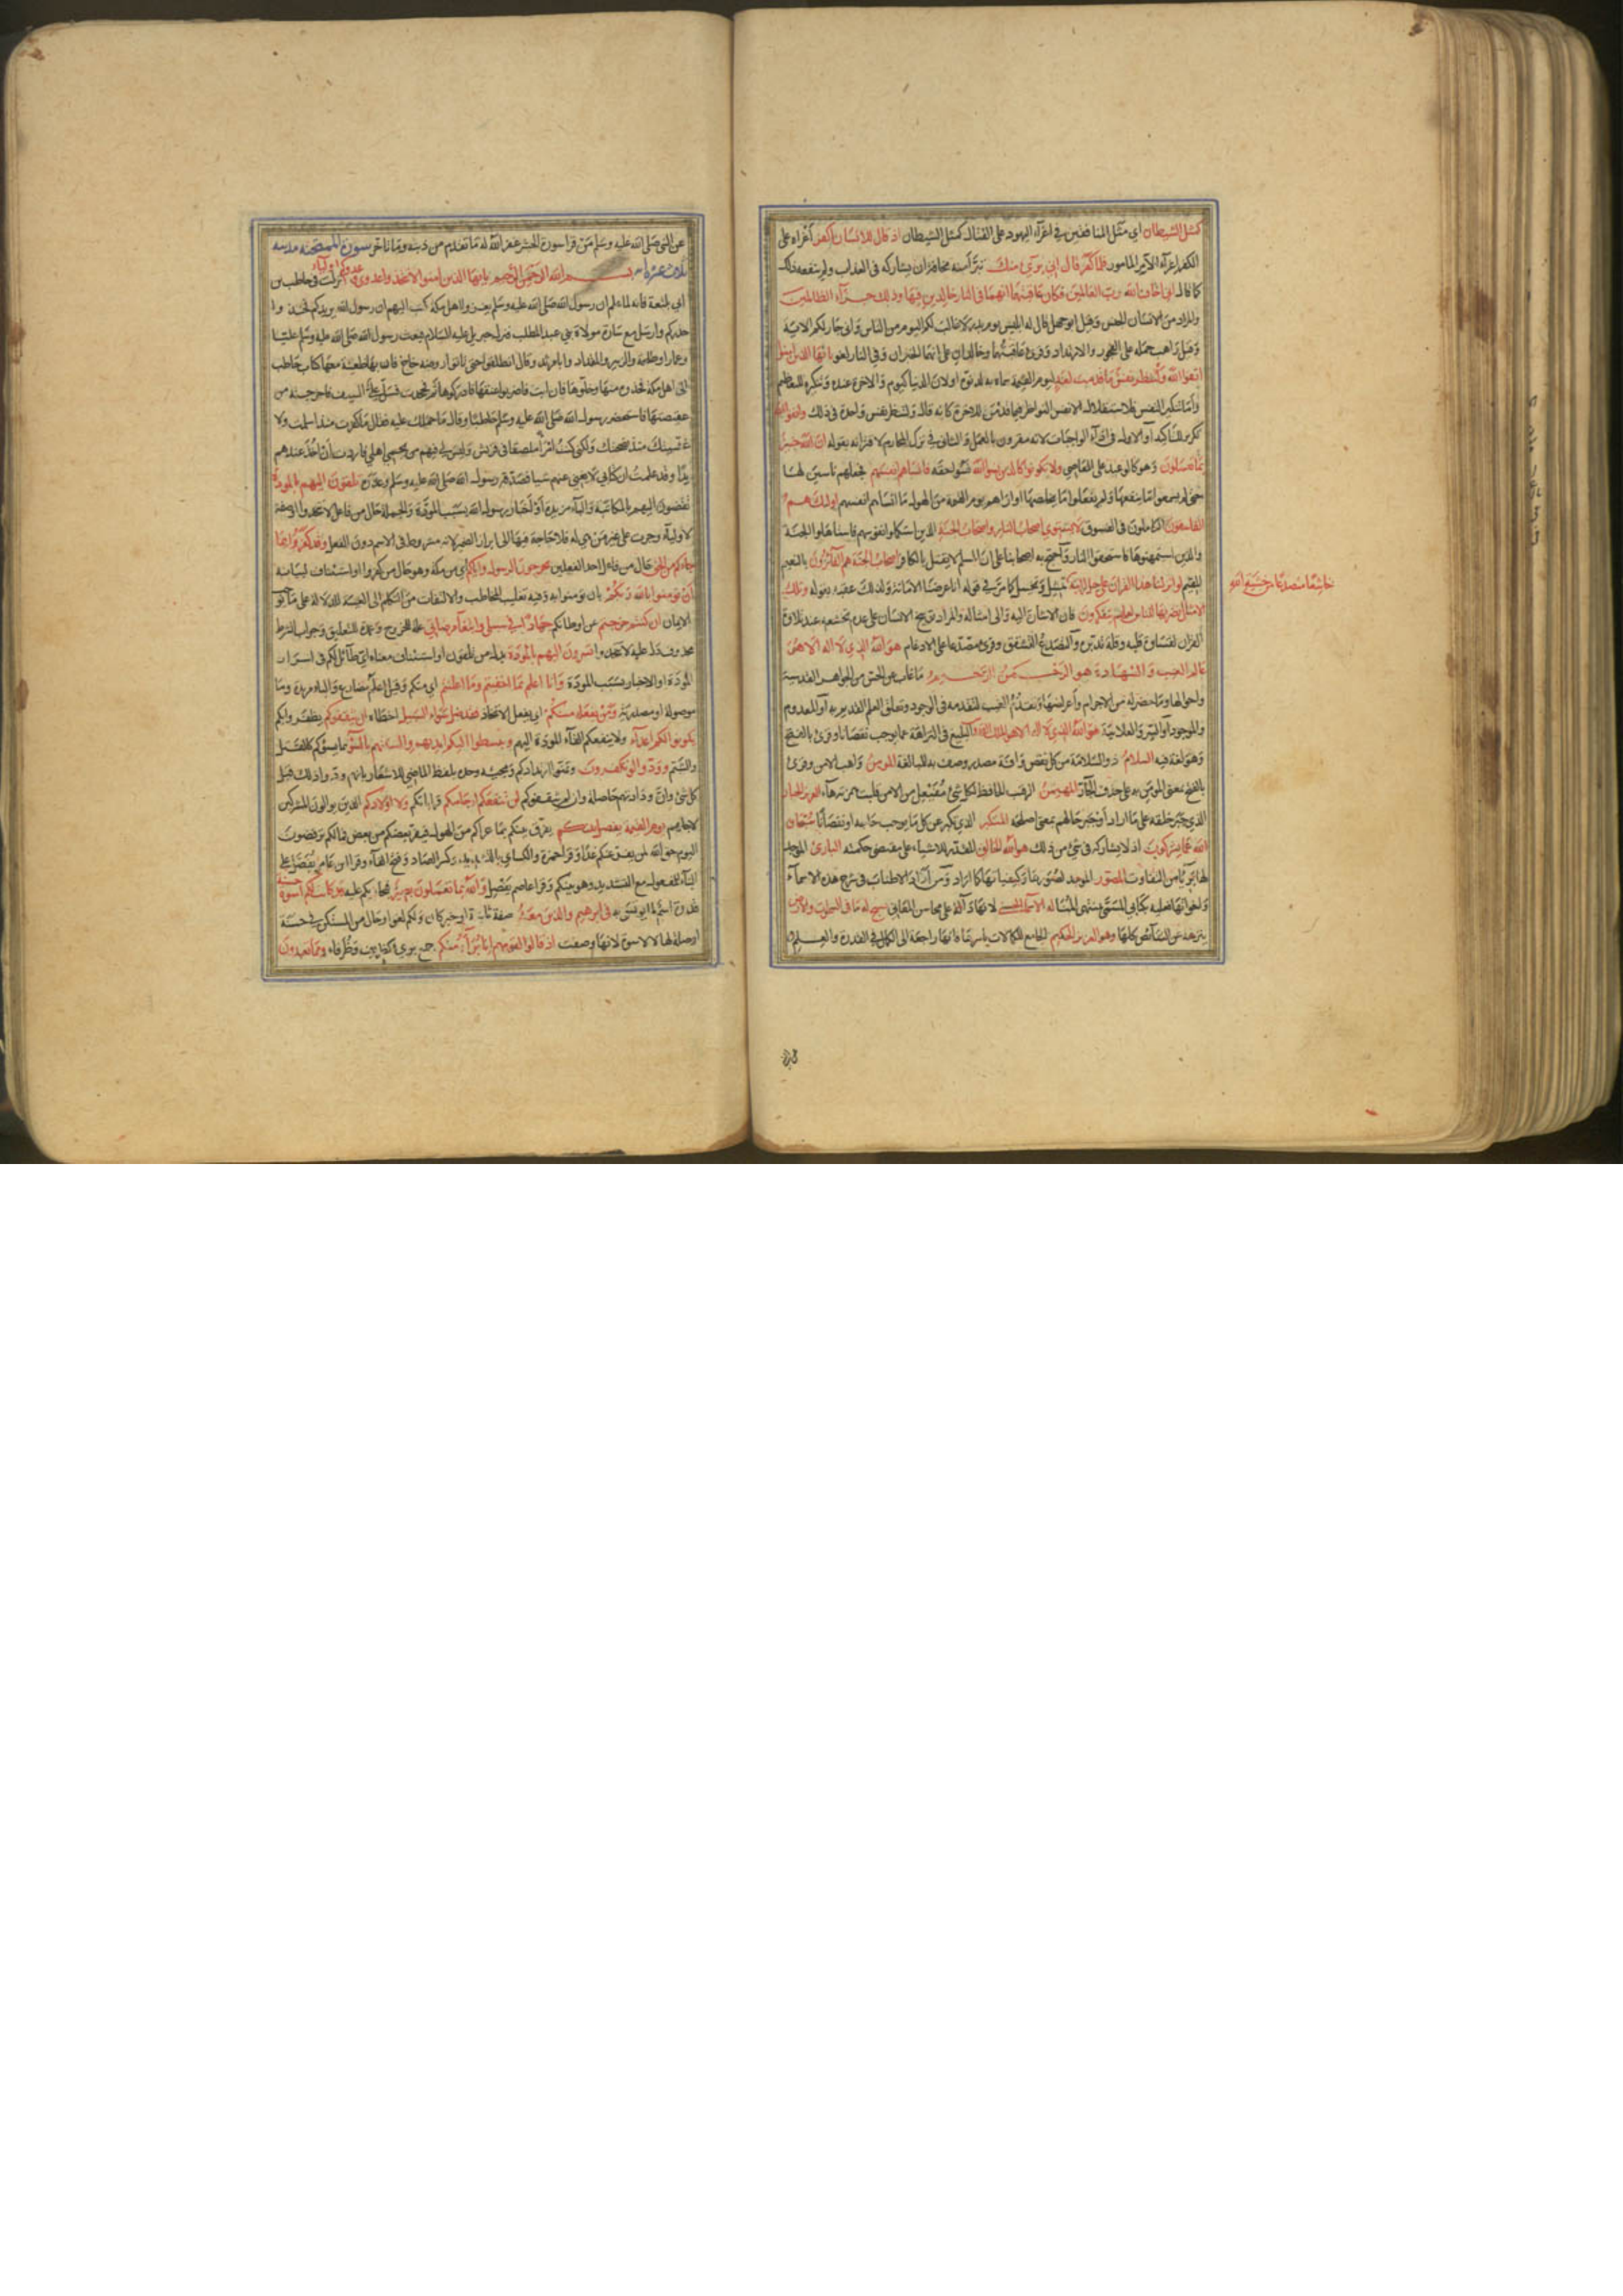 كمثل الشيطان اي مثل المنافقين في اغراء اليهود على القتال كمثل الشيطان اذ قال للانسان اكفر اغراه على
الكفر اغراء الآمر المامور فلما كفر قال اني بريء منك تبرأ منه مخافة ان يشاركه في العذاب ولم ينفعه ذلك
كما قال اني اخاف الله رب العالمين فكان عاقبتهما انهما في النار خالدين فيها وذلك جزآء الظالمين
والمراد من الانسان الجنس وقيل ابو جهل قال له ابليس يوم بدر لا غالب لكم اليوم من الناس واني جار لكم الاية
وقيل راهب حمله على الفجور والارتداد وقرئ عاقبتهما وخالدان على انهما الخبر لان وفي النار لغو يا ايها الذين امنوا
اتقوا الله ولتنظر نفس ما قدمت لغد ليوم القيمة سماه به لدنوه او لان الدنيا كيوم والاخرة غده وتنكيره للتعظيم
واما تنكير النفس فلاستقلال الانفس النواظر فيما قدمن للاخرة كانه قال ولتنظر نفس واحدة في ذلك واتقوا الله
تكرير للتاكيد او الاول في اداء الواجبات لانه مقرون بالعمل والثاني في ترك المحارم لاقترانه بقوله ان الله خبير
بما تعملون وهو كالوعيد على المعاصي ولا تكونوا كالذين نسوا الله نسوا حقه فانساهم انفسهم فجعلهم ناسين لها
حتى لم يسمعوا ما ينفعها ولم يفعلوا ما يخلصها او اراهم يوم القيمة من الهول ما انساهم انفسهم اولئك هم
الفاسقون الكاملون في الفسوق لا يستوي اصحاب النار واصحاب الجنة الذين استكملوا نفوسهم فاستاهلوا الجنة
والذين استمهنوها فاستحقوا النار واحتج به اصحابنا على ان المسلم لا يقتل بالكافر اصحاب الجنة هم الفائزون بالنعيم
المقيم لو انزلنا هذا القران على جبل لرايته تمثيل وتخييل كما مر في قوله انا عرضنا الامانة ولذلك عقبه بقوله وتلك
خاشعا متصدعا من خشية الله
الامثال نضربها للناس لعلهم يتفكرون فان الاشارة اليه والى امثاله والمراد توبيخ الانسان على عدم تخشعه عند تلاوة
القران لقساوة قلبه وقلة تدبره والتصدع التشقق وقرئ مصدعا على الادغام هو الله الذي لا اله الا هو
عالم الغيب والشهادة هو الرحمن الرحيم ما غاب عن الحس من الجواهر القدسية
واحوالها وما حضر له من الاجرام واعراضها وتقدم الغيب لتقدمه في الوجود وتعلق العلم القديم به او المعدوم
والموجود او السر والعلانية هو الله الذي لا اله الا هو الملك القدوس البليغ في النزاهة عما يوجب نقصانا وقرئ بالفتح
وهو لغة فيه السلام ذو السلامة من كل نقص وآفة مصدر وصف به للمبالغة المؤمن واهب الامن وقرئ
بالفتح بمعنى المؤمن به على حذف الجار المهيمن الرقيب الحافظ لكل شئ مفيعل من الامن قلبت همزته هاء العزيز الجبار
الذي جبر خلقه على ما اراد او جبر حالهم بمعنى اصلحه المتكبر الذي تكبر عن كل ما يوجب حاجة او نقصانا سبحان
الله عما يشركون اذ لا يشاركه في شئ من ذلك هو الله الخالق المقدر للاشياء على مقتضى حكمته البارئ الموجد
لها بريا من التفاوت المصور الموجد لصورها وكيفياتها كما اراد ومن اراد الاطناب في شرح هذه الاسماء
له الاسماء الحسنى لانها دالة على محاسن المعاني يسبح له ما في السموات والارض
لتنزهه عن النقائص كلها وهو العزيز الحكيم الجامع للكمالات باسرها فانها راجعة الى الكمال في القدرة والعلم
عن النبي صلى الله عليه وسلم من قرا سورة الحشر غفر الله له ما تقدم من ذنبه وما تاخر سورة الممتحنة مدنية
ثلاث عشرة اية بسم الله الرحمن الرحيم يا ايها الذين امنوا لا تتخذوا عدوي وعدوكم اولياء نزلت في حاطب بن
ابي بلتعة فانه لما علم ان رسول الله صلى الله عليه وسلم يغزو اهل مكة كتب اليهم ان رسول الله يريدكم فخذوا
حذركم وارسل مع سارة مولاة بني عبد المطلب فنزل جبريل عليه السلام فبعث رسول الله صلى الله عليه وسلم عليا
وعمارا وطلحة والزبير والمقداد وابا مرثد وقال انطلقوا حتى تاتوا روضة خاخ فان بها ظعينة معها كتاب حاطب
الى اهل مكة فخذوه منها وخلوها فان ابت فاضربوا عنقها فادركوها ثم فجحدت فسل علي السيف فاخرجته من
عقيصتها فاستحضر رسول الله صلى الله عليه وسلم حاطبا وقال ما حملك عليه فقال ما كفرت منذ اسلمت ولا
غششتك منذ نصحتك ولكني كنت امرأ ملصقا في قريش وليس لي فيهم من يحمي اهلي فاردت ان آخذ عندهم
يدا وقد علمت ان كتابي لا يغني عنهم شيا فصدقه رسول الله صلى الله عليه وسلم وعذره تلقون اليهم بالمودة
تفضون اليهم بالمكاتبة والباء مزيدة او اخبار رسول الله بسبب المودة والجملة حال من فاعل لا تتخذوا او صفة
لاولياء وجرت على غير من هي له فلا حاجة فيها الى ابراز الضمير لانه مشروط في الاسم دون الفعل وقد كفروا بما
جاءكم من الحق حال من فاعل احد الفعلين يخرجون الرسول واياكم اي من مكة وهو حال من كفروا او استئناف لبيانه
ان تؤمنوا بالله ربكم بان تؤمنوا به وفيه تغليب المخاطب والالتفات من التكلم الى الغيبة للدلالة على ما يوجب
الايمان ان كنتم خرجتم عن اوطانكم جهادا في سبيلي وابتغاء مرضاتي علة للخروج وعمدة للتعليق وجواب الشرط
محذوف دل عليه لا تتخذوا تسرون اليهم بالمودة بدل من تلقون او استئناف معناه اي طائل لكم في اسرار
المودة او الاخبار بسبب المودة وانا اعلم بما اخفيتم وما اعلنتم اي منكم وقيل اعلم مضارع والباء مزيدة وما
موصولة او مصدرية ومن يفعله منكم اي يفعل الاتخاذ فقد ضل سواء السبيل اخطاه ان يثقفوكم يظفروا بكم
يكونوا لكم اعداء ولا ينفعكم القاء المودة اليهم ويبسطوا اليكم ايديهم والسنتهم بالسوء ما يسوكم كالقتل
والشتم وودوا لو تكفرون وتمنوا ارتدادكم ومجيئه وحده بلفظ الماضي للاشعار بانهم ودوا ذلك قبل
كل شئ وان ودادتهم حاصلة وان لم يثقفوكم لن تنفعكم ارحامكم قراباتكم ولا اولادكم الذين توالون المشركين
لاجلهم يوم القيمة يفصل بينكم يفرق بينكم بما عراكم من الهول فيفر بعضكم من بعض فما لكم ترفضون
اليوم حق الله لمن يفر عنكم غدا وقرا حمزة والكسائي بالتشديد وكسر الصاد وفتح الفاء وقرا ابن عامر يفصل على
البناء للمفعول مع التشديد وهو بينكم وقرا عاصم يفصل والله بما تعملون بصير فيجازيكم عليه قد كانت لكم اسوة حسنة
قدوة اسم لما يؤتسى به في ابرهيم والذين معه صفة ثانية او خبر كان ولكم لغو او حال من المستكن في حسنة
او صلة لها لا لاسوة لانها وصفت اذ قالوا لقومهم انا برآء منكم جمع بريء كظريف وظرفاء ومما تعبدون